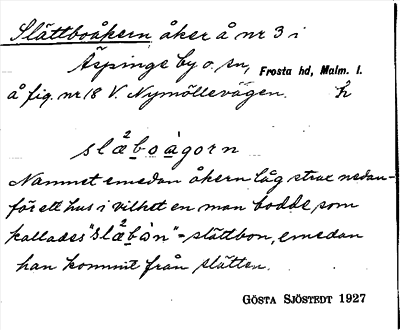 Slättboåkern åker å nr 3 i
Äspinge by o. sn, Frosta hd, Malm. l.
å fig. nr 18 V. Nymöllevägen. h
slæ²boàgorn
Namnet emedan åkern låg strax nedan-
för ett hus i vilket en man bodde, som
kallades "slæ²bòn" = slättbon, emedan
han kommit från slätten.
GÖSTA SJÖSTEDT 1927